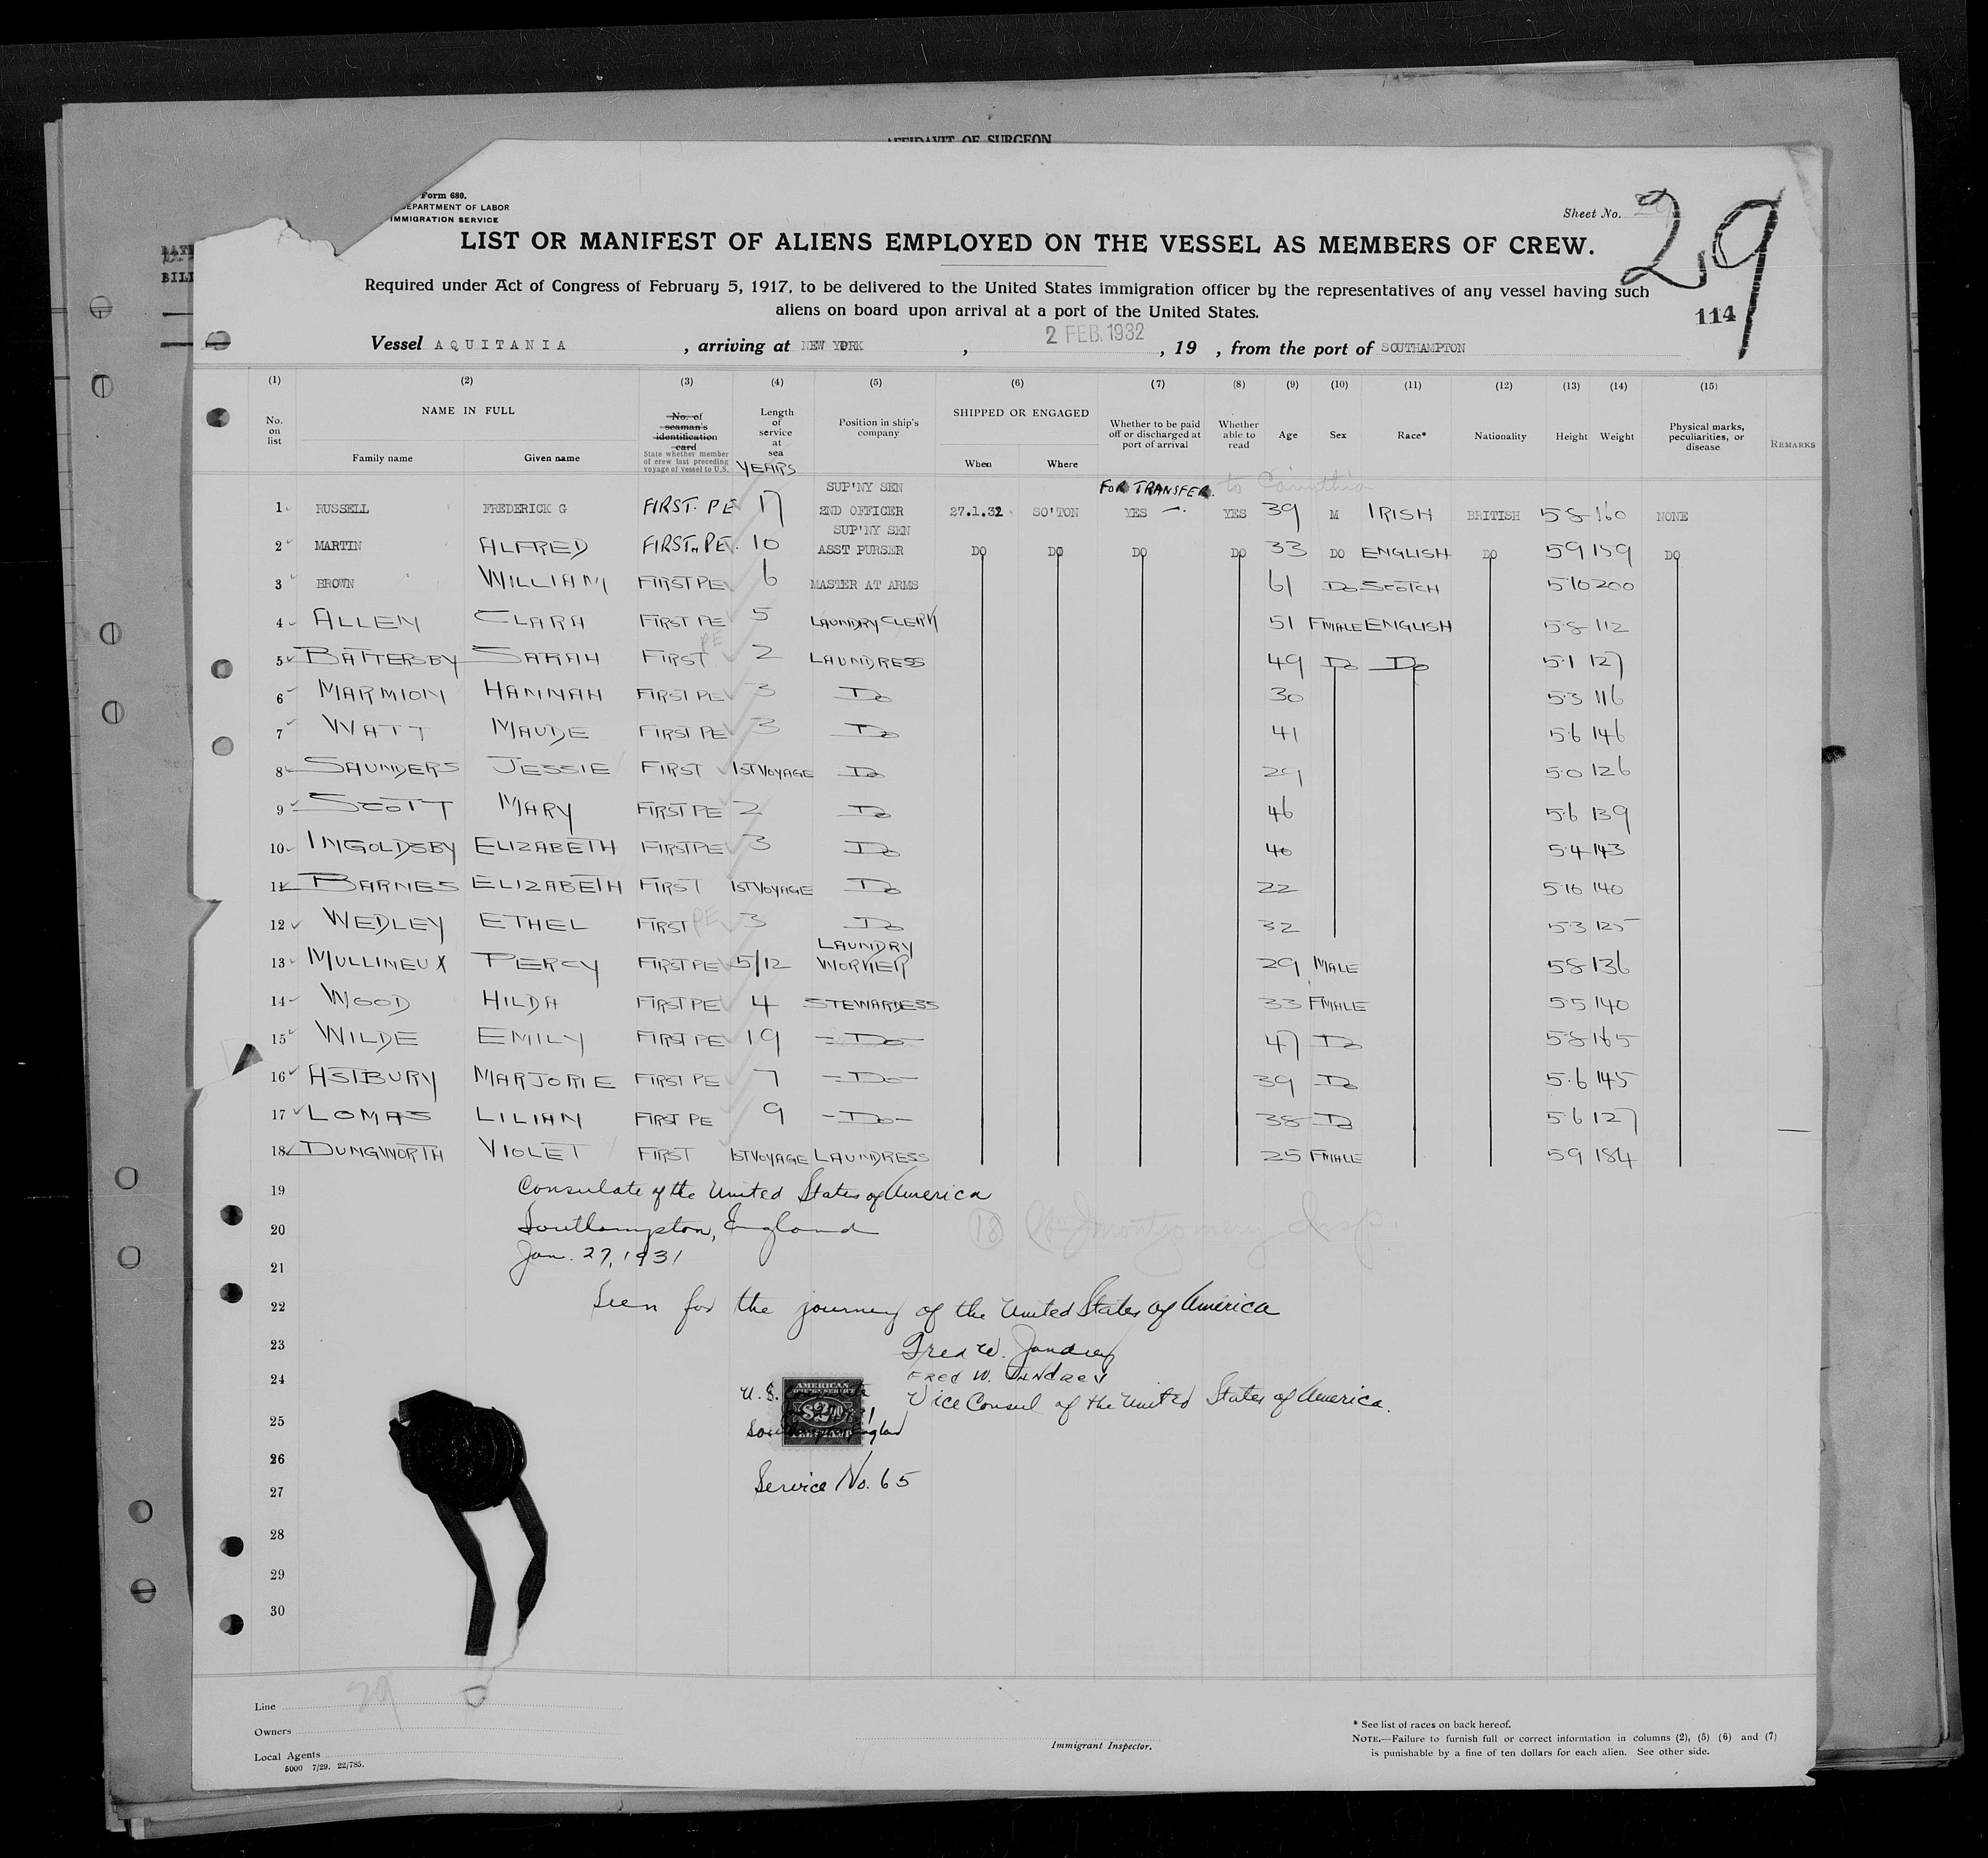 AFFIDAVIT OF SURGEON
Form 680.
DEPARTMENT OF LABOR
IMMIGRATION SERVICE
Sheet No. 29
29
LIST OR MANIFEST OF ALIENS EMPLOYED ON THE VESSEL AS MEMBERS OF CREW.
Required under Act of Congress of February 5, 1917, to be delivered to the United States immigration officer by the representatives of any vessel having such
aliens on board upon arrival at a port of the United States.
114
Vessel AQUITANIA , arriving at NEW YORK , 2 FEB. 1932 , 19 , from the port of SOUTHAMPTON
(1) (2) (3) (4) (5) (6) (7) (8) (9) (10) (11) (12) (13) (14) (15)
No. on list NAME IN FULL Family name Given name No. of seaman's identification card State whether member of crew last preceding voyage of vessel to U.S. Length of service at sea YEARS Position in ship's company SHIPPED OR ENGAGED When Where Whether to be paid off or discharged at port of arrival Whether able to read Age Sex Race* Nationality Height Weight Physical marks, peculiarities, or disease REMARKS
FOR TRANSFER. to Carinthia
1 RUSSELL FREDERICK G FIRST. PE 17 SUP'NY SEN 2ND OFFICER 27.1.32 SO'TON YES YES 39 M IRISH BRITISH 5 8 160 NONE
2 MARTIN ALFRED FIRST. PE. 10 SUP'NY SEN ASST PURSER DO DO DO DO 33 DO ENGLISH DO 5 9 159 DO
3 BROWN WILLIAM FIRST PE 6 MASTER AT ARMS 61 Do SCOTCH 5 10 200
4 ALLEN CLARA FIRST PE 5 LAUNDRY CLERK 51 FMALE ENGLISH 5 8 112
5 BATTERSBY SARAH FIRST PE 2 LAUNDRESS 49 Do Do 5.1 127
6 MARMION HANNAH FIRST PE 3 Do 30 5.3 116
7 WATT MAUDE FIRST PE 3 Do 41 5.6 146
8 SAUNDERS JESSIE FIRST 1ST VOYAGE Do 29 5.0 126
9 SCOTT MARY FIRST PE 2 Do 46 5.6 139
10 INGOLDSBY ELIZABETH FIRST PE 3 Do 40 5.4 143
11 BARNES ELIZABETH FIRST 1ST VOYAGE Do 22 5.10 140
12 WEDLEY ETHEL FIRST PE 3 Do 32 5.3 125
13 MULLINEUX PERCY FIRST PE 5/12 LAUNDRY WORKER 29 MALE 5 8 136
14 WOOD HILDA FIRST PE 4 STEWARDESS 33 FMALE 5.5 140
15 WILDE EMILY FIRST PE 19 -Do- 47 Do 5.8 165
16 ASTBURY MARJORIE FIRST PE 7 -Do- 39 Do 5.6 145
17 LOMAS LILIAN FIRST PE 9 -Do- 38 Do 5.6 127
18 DUNGWORTH VIOLET FIRST 1ST VOYAGE LAUNDRESS 25 FMALE 5.9 184
19 Consulate of the United States of America
20 Southampton, England
21 Jan. 27, 1931
22 Seen for the journey of the United States of America
23 Fred W. Jandrey
24 FRED W. JANDREY
Vice Consul of the United States of America.
AMERICAN
FOREIGN SERVICE
$2.00
FEE STAMP
25
26
27 Service No. 65
28
29
30
Line 29
Owners
Local Agents
5000 7/29. 22/785.
Immigrant Inspector.
* See list of races on back hereof.
NOTE.—Failure to furnish full or correct information in columns (2), (5) (6) and (7)
is punishable by a fine of ten dollars for each alien. See other side.